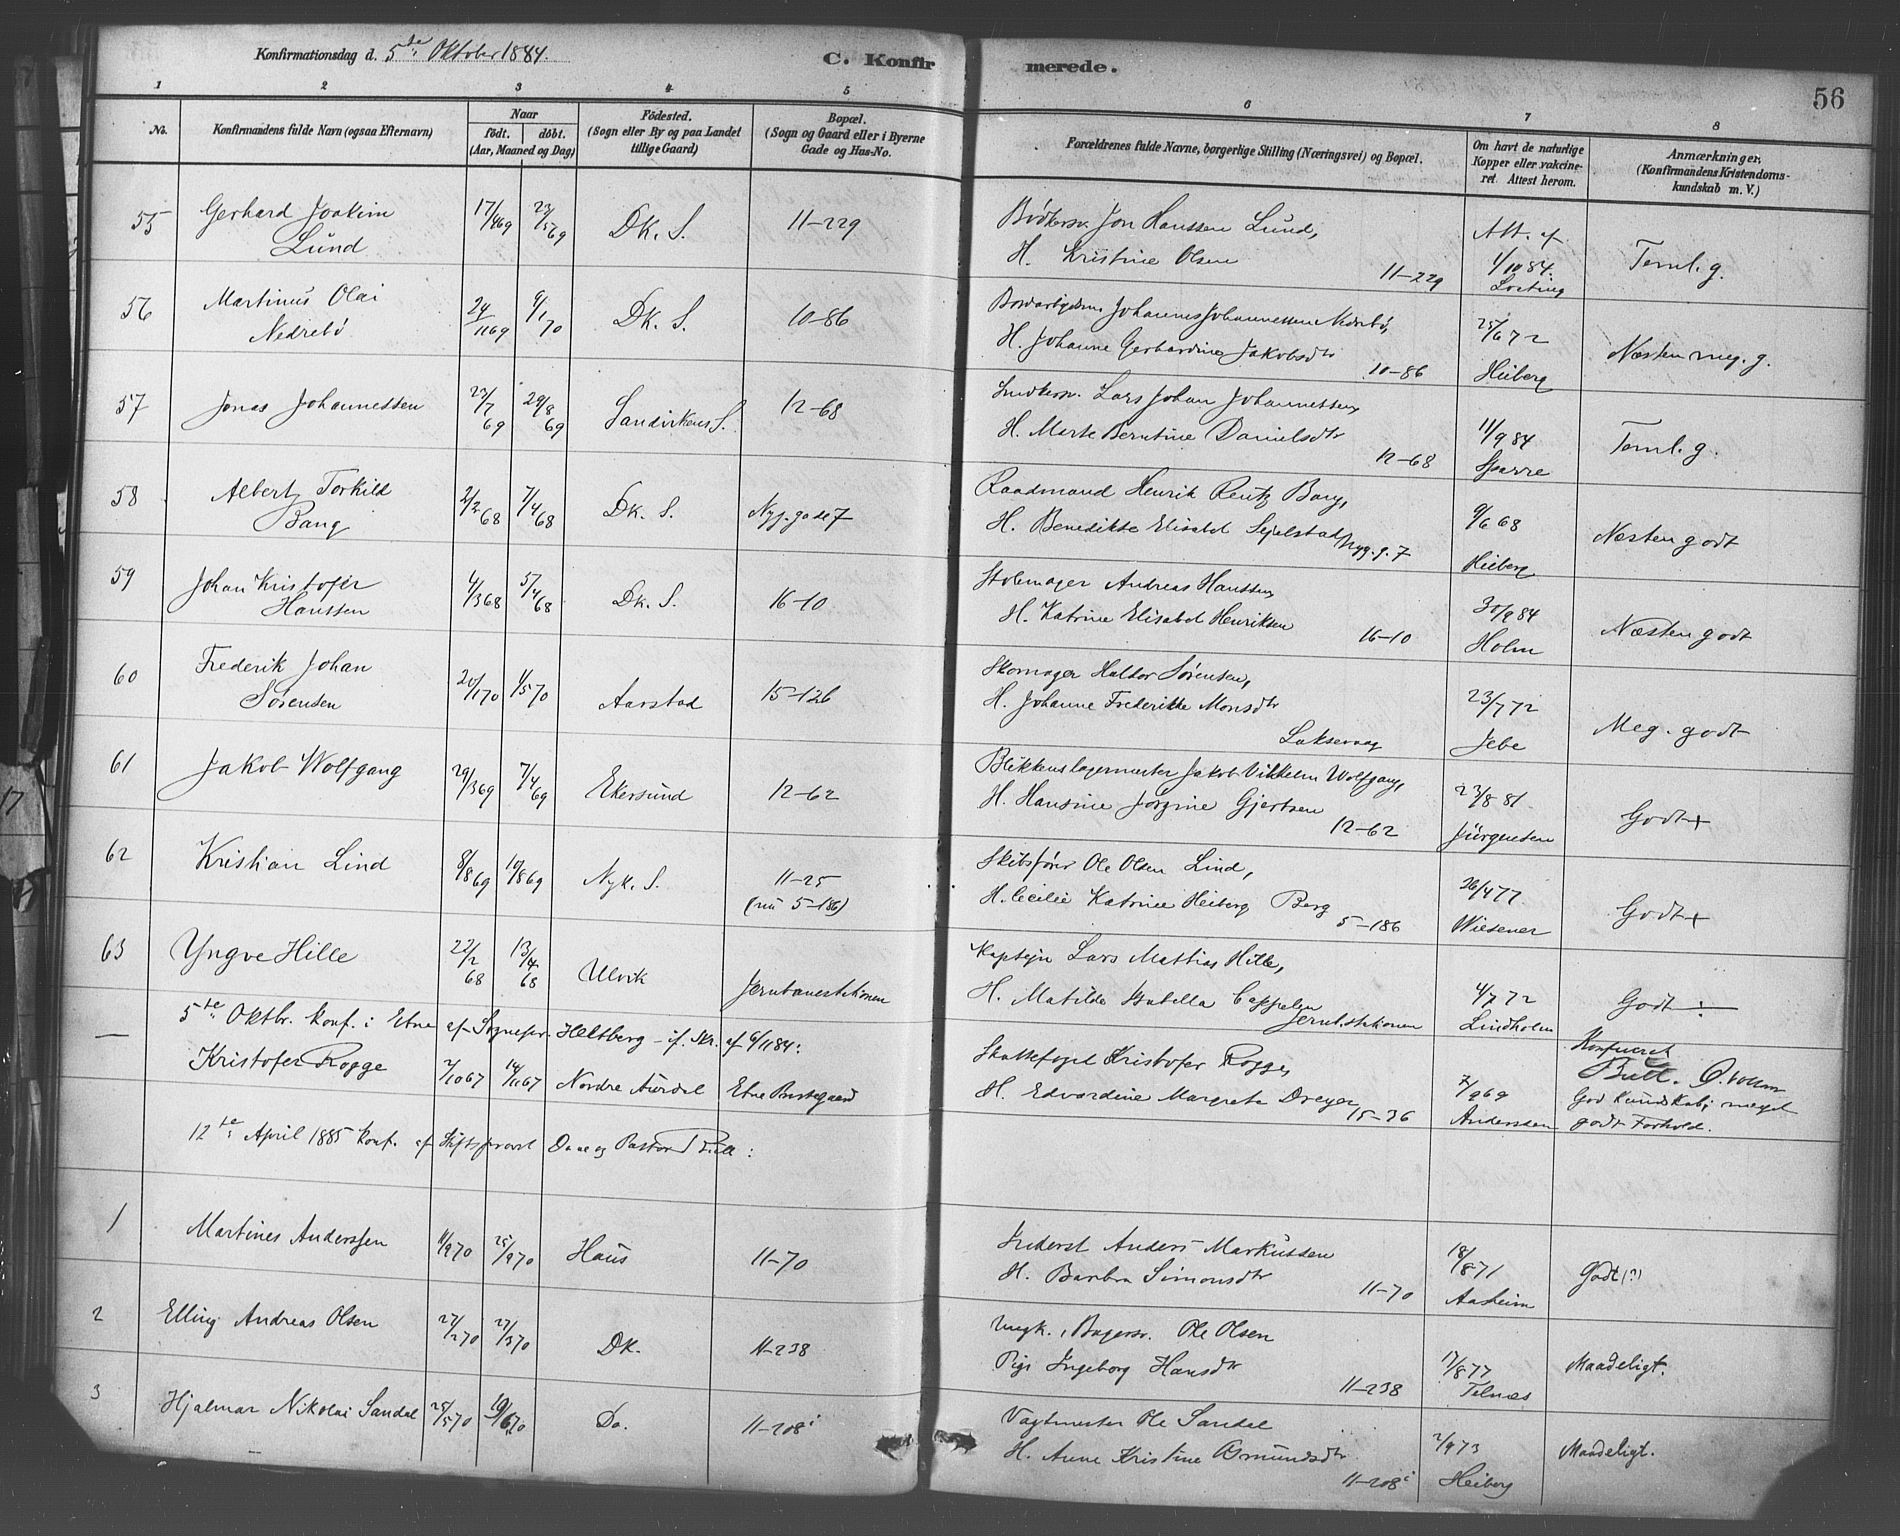 Konfirmationsdag d. 5te Oktober 1884.
C. Konfirmerede.
56
1 2 3 4 5 6 7 8
No.
Konfirmandens fulde Navn (ogsaa Efternavn)
Naar
födt. döbt.
(Aar, Maaned og Dag)
Födested.
(Sogn eller By og paa Landet
tillige Gaard)
Bopæl.
(Sogn og Gaard eller i Byerne
Gade og Hus-No.
Forældrenes fulde Navne, borgerlige Stilling (Næringsvei) og Bopæl.
Om havt de naturlige
Kopper eller vakcine-
ret Attest herom.
Anmærkninger.
(Konfirmandens Kristendoms-
kundskab m. V.)
55 Gerhard Joakim Lund 17/4 69 23/5 69 Dk. S. 11-229
Bödkersv. Jon Hanssen Lund,
H. Kristine Olsen 11-229
Att. af 1/10 84. Soeting
Teml. g.
56 Martinus Olai Nedrebö 24/11 69 6/1 70 Dk. S. 10-86
Johannes Johannessen Nedrebö,
H. Johanne Gerhardine Jakobsdtr 10-86
25/6 72 Heiberg
Næsten meg. g.
57 Jonas Johannessen 23/7 69 29/8 69 Sandvikens S. 12-68
Snedkersv. Lars Johan Johannessen,
H. Marte Berntine Danielsdtr 12-68
11/9 84 Sparre
Teml. g.
58 Albert Torkild Bang 2/2 68 7/4 68 Dk. S. Nyg. gade 7
Raadmand Henrik Rentz Bang,
H. Benedikte Elisabet Sejelstad Nyg. g. 7
9/6 68 Heiberg
Næsten godt
59 Johan Kristofer Hanssen 4/3 68 5/4 68 Dk. S. 16-10
Stolmager Andreas Hanssen,
H. Katrine Elisabet Henriksen 16-10
30/9 84 Holm
Næsten godt
60 Frederik Johan Sörensen 20/1 70 1/5 70 Aarstad 15-126
Skomager Haldor Sörensen,
H. Johanne Frederikke Monsdtr
Laksevaag
23/7 72 Jebe
Meg. godt
61 Jakob Wolfgang 29/3 69 7/4 69 Ekersund 12-62
Blikkenslagermester Jakob Vilhelm Wolfgang,
H. Hansine Jörgine Gjertsen 12-62
23/8 81 Jürgensen
Godt+
62 Kristian Lind 8/8 69 10/8 69 Nyk. S. 11-25
(nu 5-186)
Skibsförer Ole Olsen Lind,
H. Cecilie Katrine Heiberg Berg 5-186
26/4 77 Wiesener
Godt+
63 Yngve Hille 22/2 68 13/4 68 Ulvik Jernbanestationen
Kaptejn Lars Mattias Hille,
H. Matilde Isabella Cappelen Jernb.stationen
4/7 72 Lindholm
Godt ÷
— 5te Oktbr. konf. i Etne af Sognepr. Heltberg – if. Skr. af 6/11 84:
Kristofer Rogge 7/10 67 14/11 67 Nordre Aurdal Etne Prestegaard
Skattefoged Kristofer Rogge,
H. Edvardine Margrete Dreyer 15-36
7/9 69 Anderssen
God Kundskab; meget
godt Forhold.
12te April 1885 konf. af Stiftsprovst Daae og Pastor Bull:
1 Martines Anderssen 11/9 70 25/9 70 Haus 11-70
Inderst Anders Markussen
H. Barbra Simonsdtr 11-70
18/8 71 Aasheim
Godt (?)
2 Elling Andreas Olsen 27/2 70 27/3 70 Dk. 11-238
Ungk., Bagersv. Ole Olsen
Pige Ingeborg Hansdtr 11-238
17/8 77 Telnæs
Maadeligt.
3 Hjalmar Nikolai Sandal 25/5 70 19/6 70 Do. 11-208
Vagtmester Ole Sandal
H. Anne Kristine Asmundsdtr 11-208
2/9 73 Heiberg
Maadeligt.